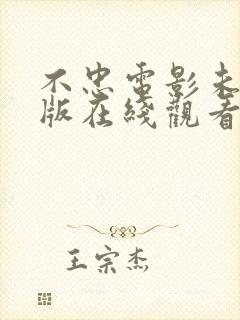 不忠電影未
版在綫觀看
王宗杰